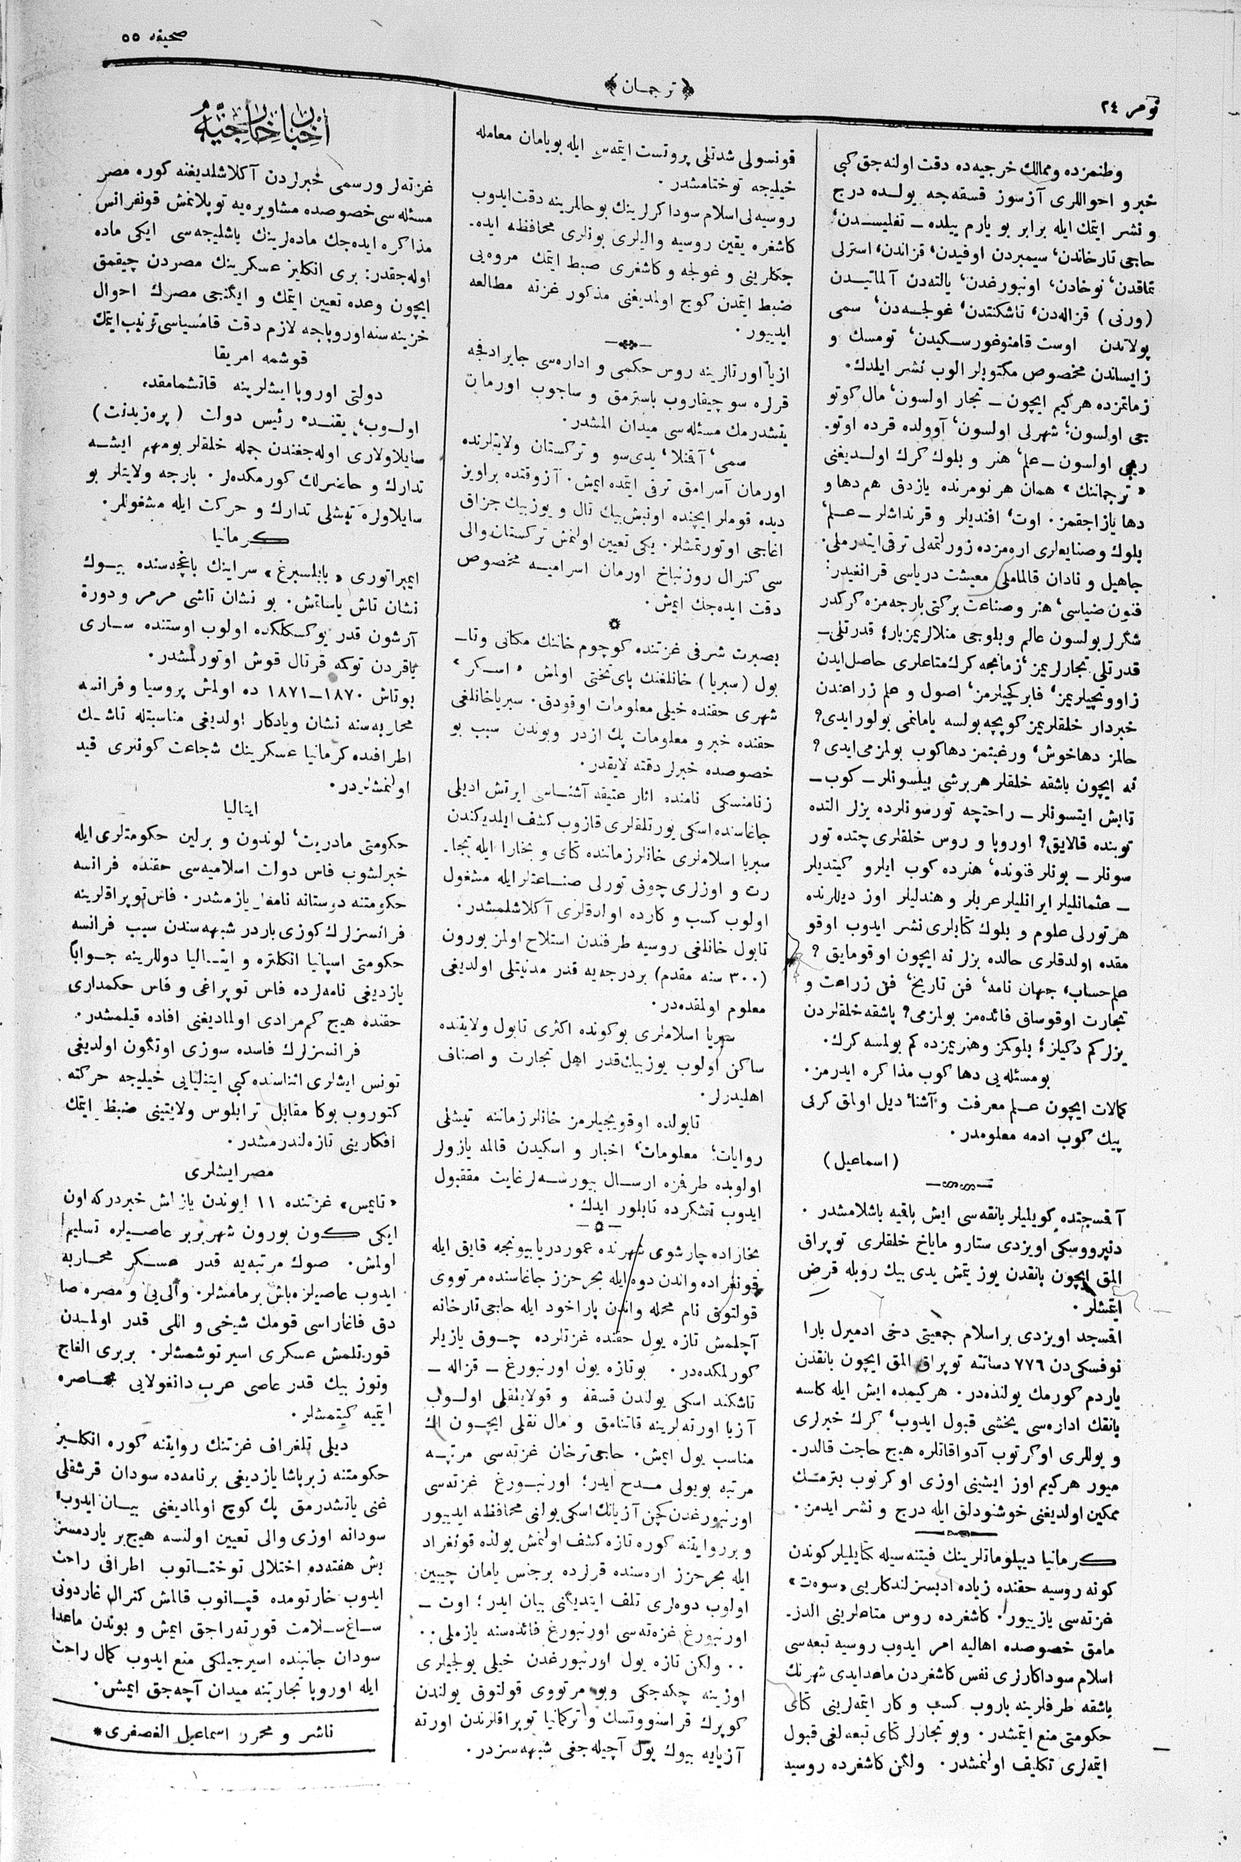 صحیفه ٥٥
﴿ ترجمان ﴾
نومر ٢٤
وطنمزده وممالك خرجیه‌ده دقت اولنه جق كبی
خبر و احواللری آزسوز قسقه‌جه یولده درج
و نشر ایتمك ایله برابر بو یارم ییلده ــ تفلیسدن؛
حاجی تارخاندن، سیمبردن اوفیدن، قزاندن، استرلی
تماقدن، نوخادن، اونبورغدن، یالته‌دن آلماتیدن
(ورنی) قزاله‌دن، تاشكنتدن، غولجه‌دن، سمی
پولاتدن اوست قامنوغورسكیدن، تومسك و
زایساندن مخصوص مكتوبلر الوب نشر ایلدك.
زمانمزده هركیم ایچون ــ تجار اولسون، مال كوتو
جی اولسون؛ شهرلی اولسون، آوولده قرده اوتو.
رجی اولسون ــ علم، هنر و بلوك كرك اولدیغی
«ترجماننك» همان هر نومرنده یازدق هم دها و
دها یازاجقمز. اوت، افندیلر و قرنداشلر ــ علم،
بلوك وصنایعلری ارەمزده زورلتمه‌لی ترقی ایتدرملی.
جاهیل و نادان قالماملی معیشت دریاسی قرانغیدر:
فنون ضیاسی، هنر وصناعت بركتی بارجه مزه كركدر
شكرلر بولسون عالم وبلوجی منلالریمز بار؛ قدرتلی ــ
قدرتلی تجارلریمز، زمانمجه كرك متاعلری حاصل ایدن
زاوودچیلریمز، فابركچیلرمز، اصول و علم زراعتدن
خبردار خلقلریمز كوپچه بولسه یامانمی بولور ایدی؟
حالمز دها خوش، ورغبتمز دها كوب بولمزمی ایدی؟
نه ایچون باشقه خلقلر هر برشی بیلسونلر ــ كوب ــ
تابش ایتسونلر ــ راحتچه تورسونلرده بزلر التده
توبنده قالایق؟ اوروپا و روس خلقلری چتده تور
سونلر ــ بونلر فنونده، هنرده كوب ایلرو كیتدیلر
ــ عثمانلیلر ایرانلیلر عربلر وهندلیلر اوز دیللرنده
هر تورلی علوم و بلوك كتابلری نشر ایدوب اوقو
مقده اولدقلری حالده بزلر نه ایچون اوقومایق؟
علم حساب، جهان نامه، فن تاریخ، فن زراعت و
تجارت اوقوساق فائده‌مز بولمزمی؟ باشقه خلقلردن
بزلر كم دكیلز؛ بلوكمز وهنریمزده كم بولمسه كرك.
بومسئله‌یی دها كوب مذاكره ایدرمز.
كمالات ایچون علم معرفت و آشنا، دیل اولمق كرلی
پیك كوب ادمه معلومدر.
(اسماعیل)
آقسجتده كویلیلر بانقه‌سی ایش باقیه باشلامشدر.
دنپرووسكی اویزدی ستارو مایاخ خلقلری توپراق
المق ایچون بانقدن یوز یتمش یدی بیك روبله قرض
ایتمشلر.
اقسجد اویزدی بر اسلام جمعیتی دخی ادمیرل بارا
نوفسكی‌دن ٧٧٦ دساتنه توپراق المق ایچون بانقدن
یاردم كورمك یولنده‌در. هر كیمده ایش ایله كاسه
بانقك اداره‌سی یخشی قبول ایدوب، كرك خبرلری
و یوللری اوكرتوب آدوقاتلره هیچ حاجت قالدر.
میور هركیم اوز ایشینی اوزی اوكرنوب بترمتك
ممكین اولدیغی خوشنودلق ایله درج و نشر ایدمز.
كرمانیا دیپلوماتلرینك فیتنه سیله كتایلیلر كوندن
كونه روسیه حقنده زیاده ادبسزلندكاریی «سوەت»
غزته‌سی یازیور. كاشغرده روس متاعلرینی الدز.
مامق خصوصده اهالیه امر ایدوب روسیه تبعه‌سی
اسلام سوداكارلری نفس كاشغردن ماعدایدی شهرنك
باشقه طرفلرینه باروب كسب و كار ایتمه‌لرینی كتای
حكومتی منع ایتمشدر. وبو تجارلر كتای تبعه لغی قبول
ایتمه‌لری تكلیف اولنمشدر. ولكن كاشغرده روسیه
قونسولی شدتلی پروتست ایتمه‌سی ایله بویامان معامله
خیلیجه توختامشدر.
روسیه‌لی اسلام سوداكرلرینك بوحاللرینه دقت ایدوب
كاشغره یقین روسیه والیلری بونلری محافظه ایده.
جكلرینی و غولجه و كاشغری ضبط ایتمك مروەیی
ضبط ایتمدن كوج اولمدیغنی مذكور غزته مطالعه
ایدیبور.
ازیا اورتازینه روس حكمی و اداره‌سی جایرادقجه
قرلره سو چیقاروب باسترمق و ساجوب اورمان
یتشدرمك مسئله‌سی میدان المشدر.
سمی، آقتلا، یدی‌سو و تركستان ولایتلرنده
اورمان آسرامق ترقی ایتمده ایمش. آزوقتده براویز
دیده قوملر ایچنده اونبش بیك تال و یوزبیك جزاق
اغاجی اوتورتمشلر. یكی تعیین اولنمش تركستان والی
سی كنرال روزنباخ اورمان اسرامیه مخصوص
دقت ایده‌جك ایمش.
بصیرت شرقی غزتنده كوچوم خاننك مكانی وتا ــ
بول (سبریا) خانلغنك پای‌تختی اولمش «اسكر»
شهری حقنده خیلی معلومات اوقودق. سبریاخانلغی
حقنده خبر و معلومات پك ازدر وبوندن سبب بو
خصوصده خبرلر دقته لایقدر.
زنامنسكی نامنده اثار عتیقه آشناسی ایرتش ادیلی
جاغاسنده اسكی یورتلقلری قازوب كشف ایلدیكندن
سبریا اسلاملری خانلرزماننده كتای و بخارا ایله تجا.
رت و اوزلری چون تورلی صناعتلرایله مشغول
اولوب كسب و كارده اولدقلری آكلاشلمشدر.
تابول خانلغی روسیه طرفندن استلاح اولمز بورون
(٣٠٠ سنه مقدم) بردرجه‌یه قدر مدنیتلی اولدیغی
معلوم اولمقده‌در.
سبریا اسلاملری بوكونده اكثری تابول ولایقنده
ساكن اولوب یوزبیك‌قدر اهل تجارت و اصناف
اهلیدرلر.
تابولده اوقویجیلرمز خانلر زماننه تیشلی
روایات، معلومات، اخبار و اسكیدن قالمه یازولر
اولوبده طرفزه ارسال بیورسه‌لر غایت مققبول
ایدوب تشكرده تابلور ایدك.
بخارا‌ده چارشوی شهرنده عموردریا بویونجه قایق ایله
قونغراده واندن دوه ایله بحرحزز جاغاسنده مرتووی
قولتوق نام محمله واندن پاراخود ایله حاجی‌تارخانه
آچلمش تازه یول حقنده غزتلرده چوق یازیلر
كورلمكده‌در. بوتازه یول اورنبورغ ــ قزاله ــ
تاشكند اسكی یولندن قسقه و قولایتقلی اولوب
آزیا اورته‌لرینه قاتنامق و مال نقلی ایچون اك
مناسب یول ایمش. حاجی‌ترخان غزته‌سی مرتبه
مرتبه بویولی مدح ایدر؛ اورنبورغ غزته‌سی
اورنبورغدن كچن آزیانك اسكی یولنی محافظه ایدیبور
و برروایتنه كوره تازه كشف اولنمش یولده قونغراد
ایله بحرحزز اره‌سنده قرلرده برجنس یامان چیبین
اولوب دوه‌لری تلف ایتدیگنی بیان ایدر؛ اوت ــ
اورنبورغ غزه‌ته‌سی اورنبورغ فائده‌سنه یازملی..
.. ولكن تازه یول اورنبورغدن خیلی یولجیلری
اوزینه چكه‌جكی وبو مرتووی قولتوق یولندن
كوپرك قراسنووتسك و تركمانیا توپراقلرندن اورته
آزیایه بیوك یول آچیله‌جغی شبهه‌سزدر.
اخبار خارجیه
غزته‌لر ورسمی خبرلردن آكلاشلدیغنه كوره مصر
مسئله‌سی خصوصده مشاوره‌یه توپلانمش قونفرانس
مذاكره ایده‌جك ماده‌لرینك باشلیجه‌سی ایكی ماده
اوله‌جقدر: بری انكلیز عسكرینك مصردن چیقمق
ایچون وعده تعیین ایتمك و ایكنجی مصرك احوال
خزینه‌سنه اوروپاجه لازم دقت قامسیاسی ترتیب ایتمك
قوشمه امریقا
دولتی اوروپا ایشلرینه قاتشمامقده
اولوب، یقنده رئیس دولت (پره‌زیدنت)
سایلاولاری اوله‌جغندن جمله خلقلر بومهم ایشه
تدارك و حاضرلك كورمكده‌لر. بارجه ولایتلر بو
سایلاولره تیشلی تدارك و حركت ایله مشغوللر.
كرمانیا
ایمپراتوری «بابلسبرغ» سراینك باغچه‌سنده بیوك
نشان تاش یاساتمش. بو نشان تاشی مرمر و دورة
آرشون قدر یوكسكلكده اولوب اوستنده ساری
باقردن توكمه قرتال قوش اوتورلمشدر.
بوتاش ١٨٧٠ــ١٨٧١ ده اولمش پروسیا و فرانسه
محاربه‌سنه نشان ویادكار اولدیغی مناسبتله تاشك
اطرافنده كرمانیا عسكرینك شجاعت كونلری قید
اولنمشلردر.
ایتالیا
حكومتی مادریت، لوندون و برلین حكومتلری ایله
خبرلشوب فاس دولت اسلامیه‌سی حقنده فرانسه
حكومتنه دوستانه نامه‌لر یازمشدر. فاس‌توپراقلرینه
فرانسزلرك كوزی باردر شبهه‌سندن سبب فرانسه
حكومتی اسپانیا انكلتره و ایتالیا دوللرینه جواباً
یازدیغی نامه‌لرده فاس توپراغی و فاس حكمداری
حقنده هیچ كم مرادی اولمادیغنی افاده قیلمشدر.
فرانسزلرك فاسده سوزی اوتگون اولدیغی
تونس ایشلری اثناسنده كبی ایتالیایی خیلیجه حركته
كتوروب بوكا مقابل ترابلوس ولایتینی ضبط ایتمك
افكارینی تازه‌لندرمشدر.
مصر ایشلری
«تایمس» غزتنده ١١ ایوندن یازلش خبردركه اون
ایكی كون بورون شهر بربر عاصیلره تسلیم
اولمش. صوك مرتبه‌یه قدر عسكر محاربه
ایدوب عاصیلره باش برمامشلر. والی‌یی و مصره صا
دق فاغاراسی قومك شیخی و اللی قدر اولمدن
قورتلمش عسكری اسیر توشمشلر. بربری الغاج
وتوز بیك قدر عاصی عرب دانغولایی محاصره
ایتمیه كیتمشلر.
دیلی تلغراف غزتنك روایتنه كوره انكلیز
حكومتنه زبرپاشا یازدیغی برنامه‌ده سودان قرشقلی
غنی یاتشدرمق پك كوج اولمادیغنی بیان ایدوب،
سودانه اوزی والی تعیین اولنسه هیچ بر یاردمسز
بش هفته‌ده اختلالی توختاتوب اطرافی راحت
ایدوب خارتومده قپانوب قالمش كنرال غاردونی
ساغ‌سلامت قورته‌راجق ایمش و بوندن ماعدا
سودان جانبنده اسیرجیلكی منع ایدوب كمال راحت
ایله اوروپا تجارتینه میدان آچه‌جق ایمش.
ناشر و محرر اسماعیل الغصفری*